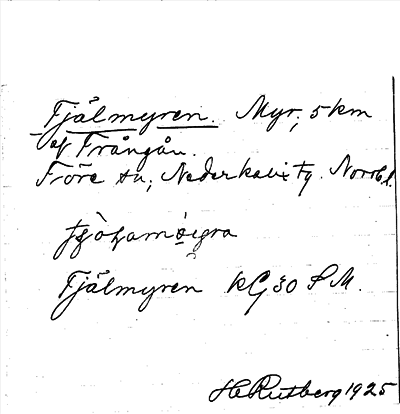 Fjälmyren. Myr, 5 km
af Frångån.
Töre sn, Nederkalix tg. Norrb. l.
Fjälmyren KG 30 S M.
H Rutberg 1925